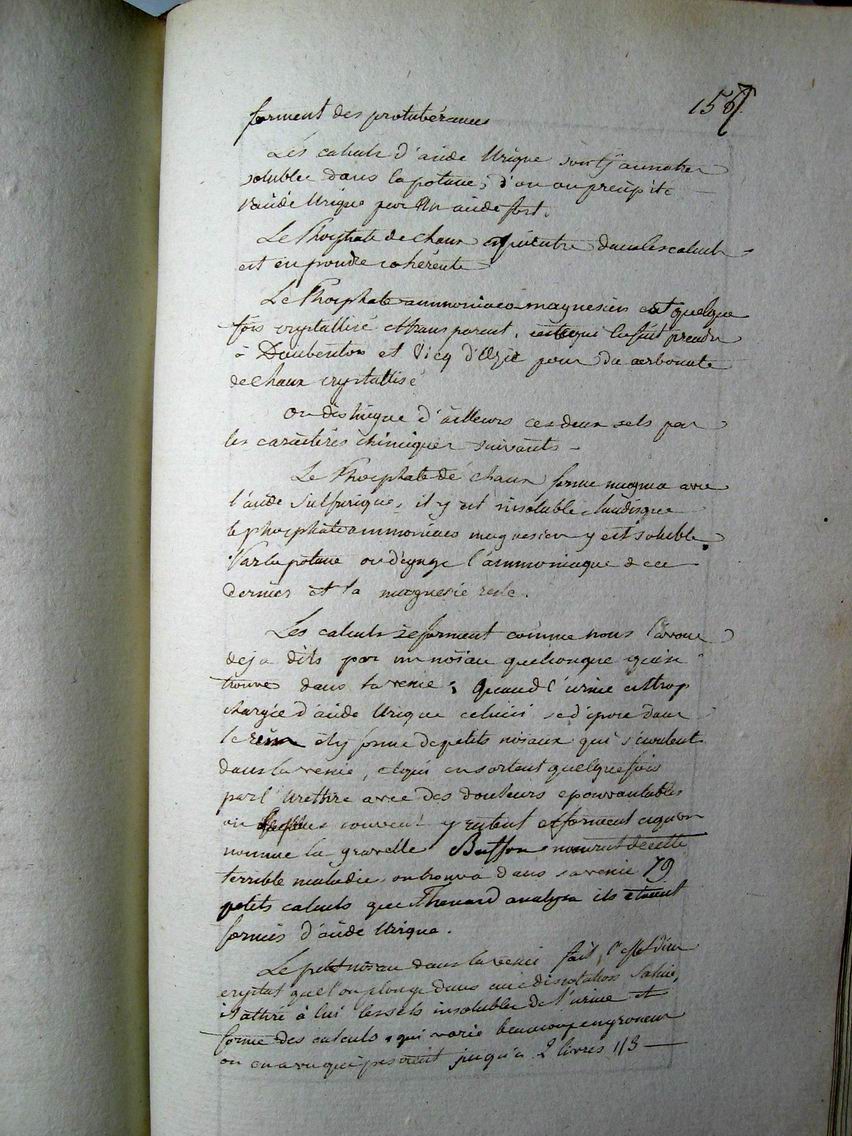 157
forment des protubérances
Les calculs d'acide Urique sont jaunatres
solubles dans la potasse, d'ou on precipite
l'acide Urique par Un acide fort.
Le Phosphate de chaux dans les calculs
est en poudre cohérente
Le Phosphate ammoniaco magnesien est quelque
fois crystallisé et transparent, ce qui la fait prendre
à Daubenton et Vicq d'Azir pour du carbonate
de chaux crystallisé
on distingue d'ailleurs ces deux sels par
les caractères chimiques suivants -
Le Phosphate de chaux forme magma avec
l'acide Sulfurique, il y est insoluble, tandisque
le phosphate ammoniaco magnesien y est soluble.
Par la potasse on dégage l'ammoniaque de ce
dernier et la magnesie reste.
Les calculs se forment comme nous l'avons
deja dits par un noiau quelconque qui se
trouve dans la vessie; Quand l'urine est trop
chargée d'acide Urique celui ci se dépose dans
le rein il y forme de petits noiaux qui s'ecoulent
dans la vessie, et qui en sortent quelquefois
par l'Urethre avec des douleurs epouvantables
ou souvent y restent et forment ce qu'on
nomme la gravelle Buffon mourut de cette
terrible maladie, on trouva dans sa vessie 79
petits calculs que Thenard analysa ils étaient
formés d'acide Urique.
Le petit noiau dans la vessie fait l'effet d'un
crystal que l'on plonge dans une dissolution Saline,
il attire à lui les sels insolubles de l'urine et
forme des calculs, qui varie beaucoup en grosseur
on en a vu qui pesoient jusqu'a 2 livres 1/3 —